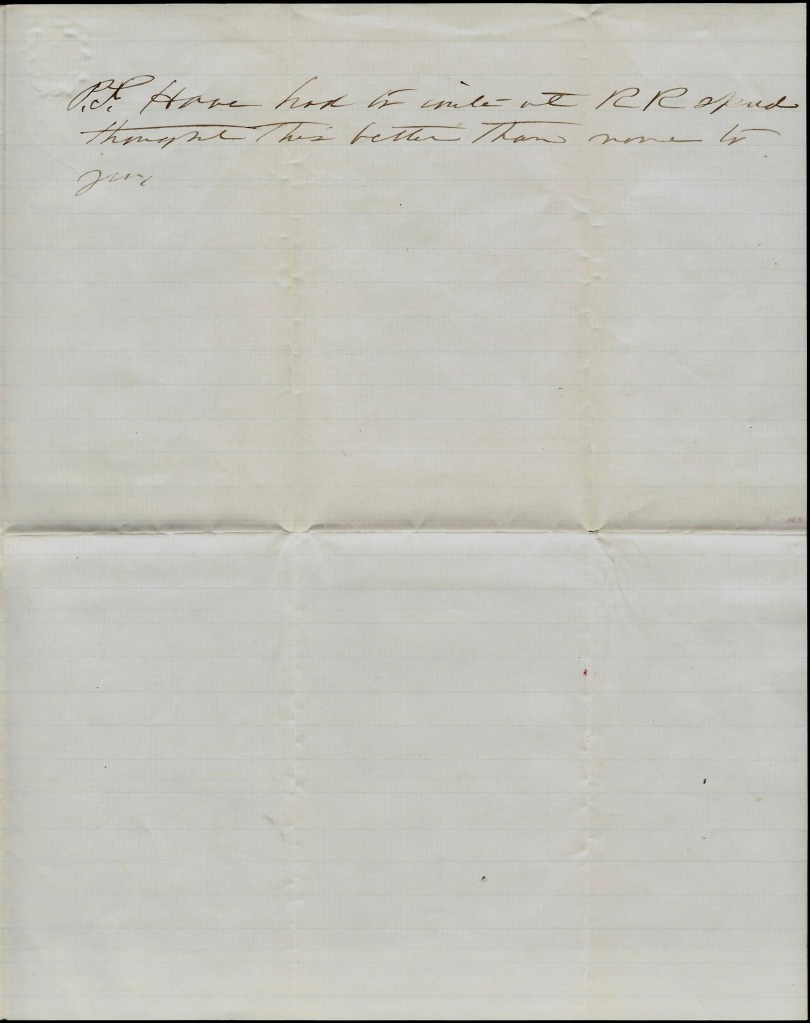 P.S. Have had to write at RR speed
thought this better than none to
you,